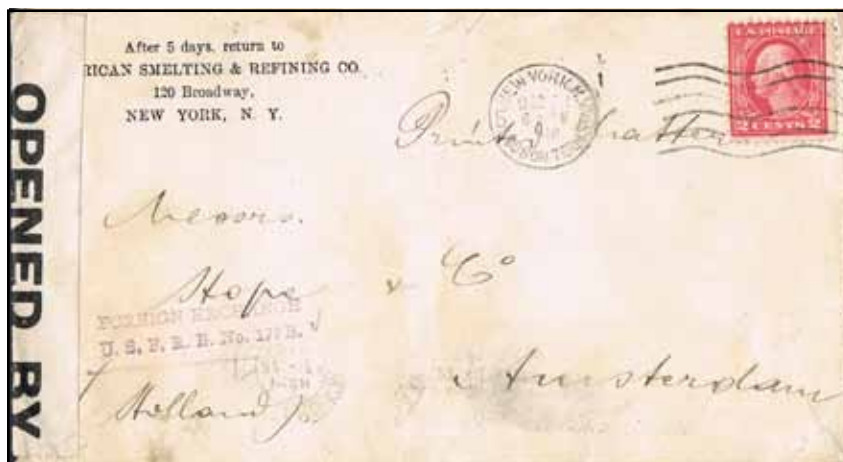 OPENED BY
After 5 days, return to
RICAN SMELTING & REFINING CO.
120 Broadway,
NEW YORK, N. Y.
NEW YORK, N.Y.
HUDSON TERM
U.S. POSTAGE
2 CENTS 2
Printed matter
Messrs.
Hope & Co
FOREIGN EXCHANGE
U. S. F. R. B. No. 
Amsterdam
Holland